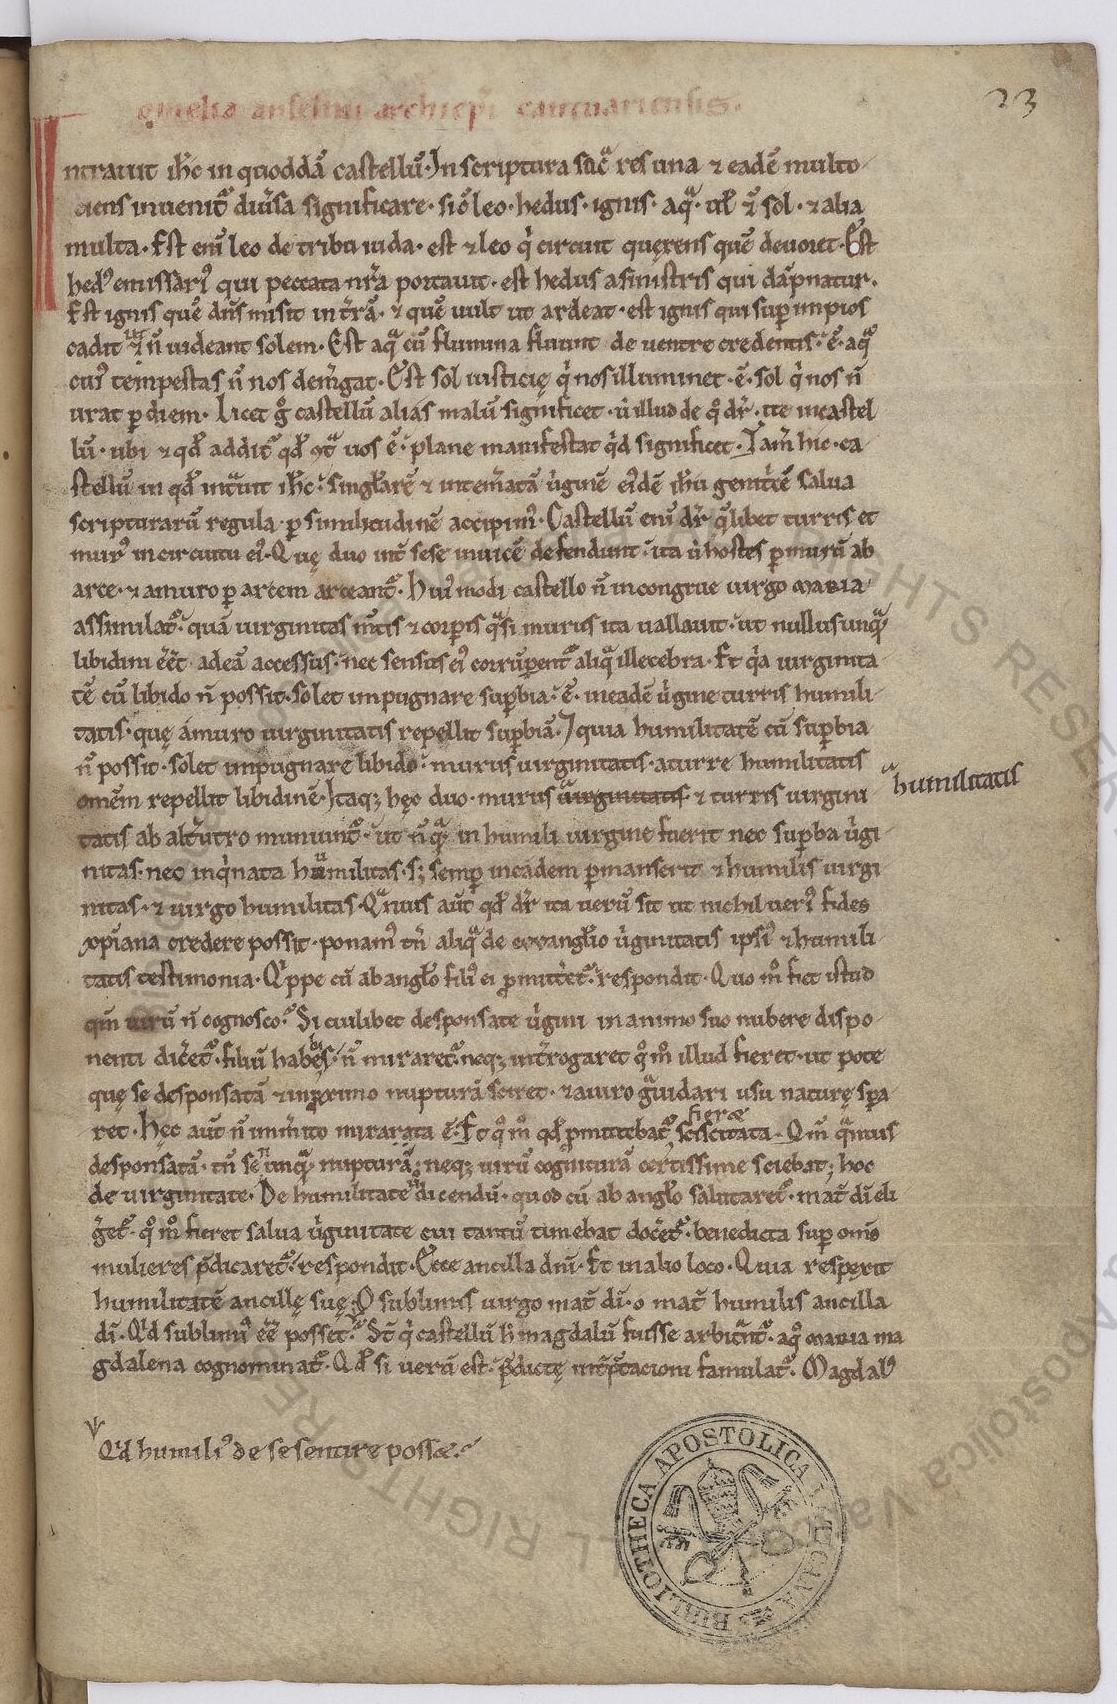 omelia anselmi archiep̄i cantuariensis.
23
Intrauit ih̄c in quoddā castellū. In scriptura sac̄ res una ⁊ eadē multo
ciens inuenit᷑ diu̓sa significare. sic̄ leo. hedus. ignis. aq̄. ul̄ ⁊ sol. ⁊ alia
multa. Est eni̅ leo de tribu iuda. est ⁊ leo q̓ circuit querens quē deuoret. Est
hedꝰ emissariꝰ qui peccata nr̄a portauit. est hedus a sinistris qui dāpnatur.
Est ignis quē dn̄s misit in t̓rā. ⁊ quē uult ut ardeat. est ignis qui suꝑ impios
cadit ut n̄ uideant solem. Est aq̄ cū flumina fluunt de uentre credentis. ē. aq̄
cuiꝰ tempestas n̄ nos dem̓gat. Est sol iusticię q̓ nos illuminet. ē. sol q̓ nos n̄
urat ꝑ diem. Licet g̊ castellū alias malū significet. ut̓ illud de q̊ dr̄. ite in castel
lū. ubi ⁊ qd̄ addit᷑ qd̄ ꝯt̄ uos ē. plane manifestat q̓d significet. Tam̄ hic. ca
stellū in qd̄ int̄uit ih̄c. singl̄arē ⁊ intem̓atā u̓ginē eiꝰdē ih̄u genit̓cē salua
scripturarū regula. ꝑ similitudinē accipimꝰ. Castellū eni̅ dr̄ q̄libet turris et
murꝰ in circuitu eiꝰ. Quę duo int̓ sese inuicē defendunt. ita ut̓ hostes ꝑ murū ab
arce. ⁊ a muro ꝑ arcem arceant᷑. Huiꝰmodi castello n̄ incongrue uirgo MARIA
assimilat᷑. quā uirginitas m̄tis ⁊ corꝑis q̄si murus ita uallauit. ut nullus unq̄
libidini ēēt adeā accessus. nec sensus eiꝰ corrūperent᷑ aliq̄ illecebra. Et q̓a uirginita
tē cū libido n̄ possit. solet impugnare suꝑbia. ē. in eadē u̓gine turris humili
tatis. quę á muro uirginitatis repellit suꝑbiā. ⁊ quia humilitatē cū suꝑbia
n̄ possit. solet impugnare libido. murus uirginitatis. a turre humilitatis
omēm repellit libidinē. Itaq; hęc duo. murus uirginitatis ⁊ turris uirgini
humilitatis
tatis ab alt̓utro muniunt᷑. ut n̄q̄; in humili uirgine fuerit nec suꝑba u̓gi
nitas. nec inq̓nata humilitas. s; semꝑ in eadem ꝑmanserit ⁊ humilis uirgi
nitas. ⁊ uirgo humilitas. Q̄uis aut̄ qd̄ dr̄ ita uerū sit ut nichil ueriꝰ fides
xp̄iana credere possit. ponamꝰ tn̄ aliq̄ de euuangl̄io u̓ginitatis ipsiꝰ ⁊ humili
tatis testimonia. Q̓ppe cū ab angl̄o filiꝰ ei ꝓmitt̓et᷑. respondit. Quo m̊ fiet istud
qm̄ uirū n̄ cognosco. Si cuilibet desponsate u̓gini in animo suo nubere dispo
nenti dic̓et᷑. filiū habebis. n̄ miraret᷑. neq; int̓rogaret q̊ m̊ illud fieret. ut pote
quę se desponsatā ⁊ in ꝓximo nupturā sciret. ⁊ a uiro g̓uidari usu naturę spera
ret. Hęc aut̄ n̄ im̄ito mirarata ē. Et q̊ m̊ qd̄ ꝓmittebat᷑ fieræ sciscitata. Qm̄ q̄muis
desponsatā. tn̄ se nūq̄ nupturā. neq; uirū cogniturā certissime sciebat; hoc
de uirginitate. De humilitate u̓ dicendū. quod cū ab angl̄o salutaret᷑. mat̓ dī eli
g̓et᷑. q̊ m̊ fieret salua u̓ginitate cui tantū timebat doc̓et᷑. benedicta suꝑ om̄s
mulieres p̄dicaret᷑. respondit. Ecce ancilla dn̄i. Et in alio loco. Quia respexit
humilitatē ancillę suę. O sublimis uirgo mat̓ dī. o mat̓ humilis ancilla
dī. Q̓d sublimiꝰ ēē posset. St̄ q̓ castellū h̓ magdalū fuisse arbit̄nt᷑. a q̊ MARIA ma
gdalena cognominat᷑. Qd̄ si uerū est. p̄dictę int̓p̄tacioni famulat᷑. Magdalꝰ
Q̓d humiliꝰ de se sentire possæ.
BIBLIOTHECA APOSTOLICA VATICANA